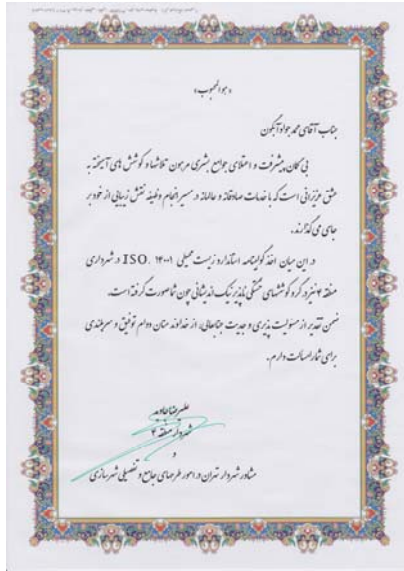 « هوالمحبوب »
جناب آقای محمد جواد آبگون
بی گمان پیشرفت و اعتلای جوامع بشری مرهون تلاشها و کوشش های آمیخته به
عشق عزیزانی است که با خدمات صادقانه و عالمانه در مسیر انجام وظیفه نقش زیبایی از خود بر
جای می گذارند.
در این میان اخذ گواهینامه استاندارد زیست محیطی ISO. ۱۴۰۰۱ در شهرداری
منطقه ۴ نیز در گرو کوششهای خستگی ناپذیر نیک اندیشانی چون شما صورت گرفته است.
ضمن تقدیر از مسئولیت پذیری و جدیت جنابعالی، از خداوند منان دوام توفیق و سربلندی
برای شما مسالت دارم.
علیرضا جاوید
شهردار منطقه ۴
و
مشاور شهردار تهران در امور طرحهای جامع و تفصیلی شهرسازی